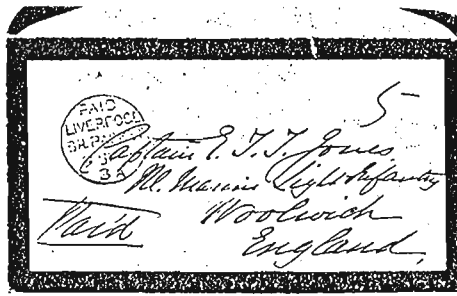 5
PAID
LIVERPOOL
Captain E. T. T. Jones
M. Marine Light Infantry
Woolwich
England.
Paid